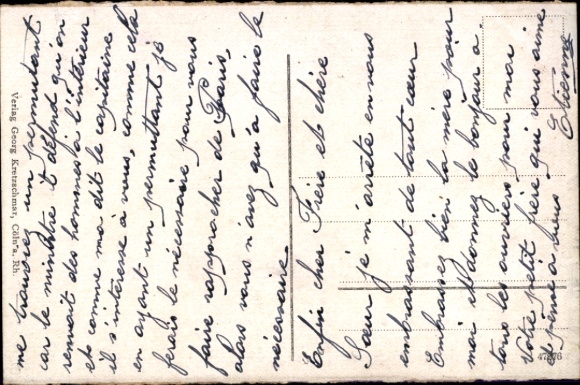 me trouviez un permutant
car le ministre défend qu'on
remort des hommes à l'intérieur
et comme ma dit le capitaine
il s'interesse à vous, comme cela
en ayant un permuttant je
ferais le nécessaire pour vous
faire rapprocher de Paris,
alors vous n'avez qu'à faire le
nécessaire.
Enfin cher Frère et chère
Sœur je m'arrête en vous
embrassant de tout cœur
Embrassez bien la mère pour
moi et donnez le bonjour a
tous les ouvriers pour moi
Votre petit frère qui vous aime
et pense à vous
Etienne
Verlag Georg Kretzschmar, Cöln a. Rh.
47276